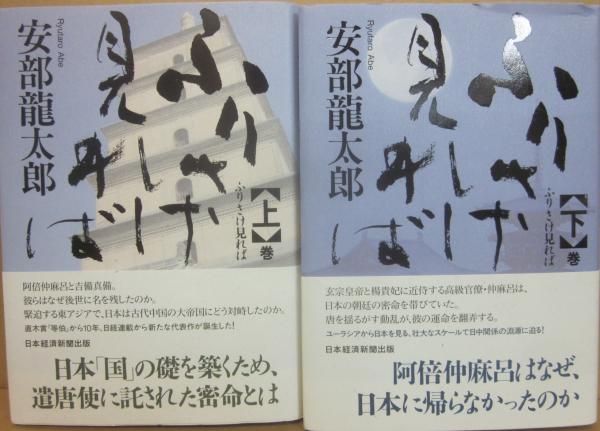 ふりさけ
見れば
【上】巻
ふりさけ見れば
安部龍太郎
Ryutaro Abe
阿倍仲麻呂と吉備真備。
彼らはなぜ後世に名を残したのか。
緊迫する東アジアで、日本は古代中国の大帝国にどう対峙したのか。
直木賞『等伯』から10年、日経連載から新たな代表作が誕生した!
日本経済新聞出版
日本「国」の礎を築くため、
遣唐使に託された密命とは
ふりさけ
見れば
【下】巻
ふりさけ見れば
安部龍太郎
Ryutaro Abe
玄宗皇帝と楊貴妃に近侍する高級官僚・仲麻呂は、
日本の朝廷の密命を帯びていた。
唐を揺るがす動乱が、彼の運命を翻弄する。
ユーラシアから日本を見る、壮大なスケールで日中関係の淵源に迫る!
日本経済新聞出版
阿倍仲麻呂はなぜ、
日本に帰らなかったのか